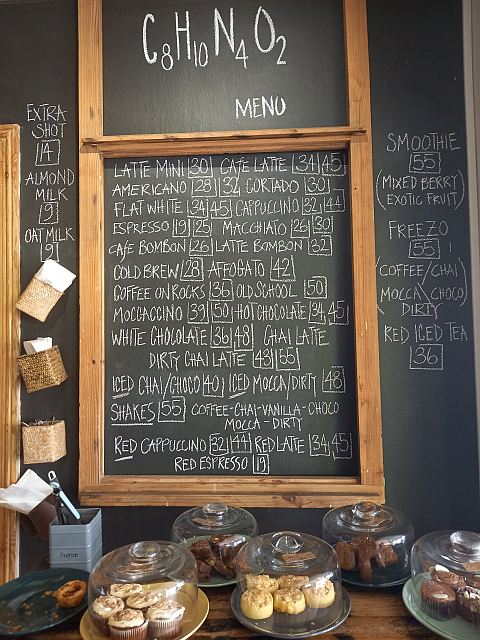 C8H10N4O2
MENU
EXTRA
SHOT
14
ALMOND
MILK
9
OAT MILK
9
LATTE MINI 30 CAFE LATTE 34 45
AMERICANO 28 32 CORTADO 30
FLAT WHITE 34 45 CAPPUCCINO 32 44
ESPRESSO 19 25 MACCHIATO 26 30
CAFE BOMBON 26 LATTE BOMBON 32
COLD BREW 28 AFFOGATO 42
COFFEE ON ROCKS 36 OLD SCHOOL 50
MOCCACCINO 39 50 HOT CHOCOLATE 34 45
WHITE CHOCOLATE 36 48 CHAI LATTE
DIRTY CHAI LATTE 43 55
ICED CHAI/CHOCO 40 ICED MOCCA/DIRTY 48
SHAKES 55 COFFEE-CHAI-VANILLA-CHOCO
MOCCA-DIRTY
RED CAPPUCCINO 32 44 RED LATTE 34 45
RED ESPRESSO 19
SMOOTHIE
55
(MIXED BERRY
EXOTIC FRUIT)
FREEZO
55
(COFFEE/CHAI
MOCCA\CHOCO
DIRTY)
RED ICED TEA
36
Sugar